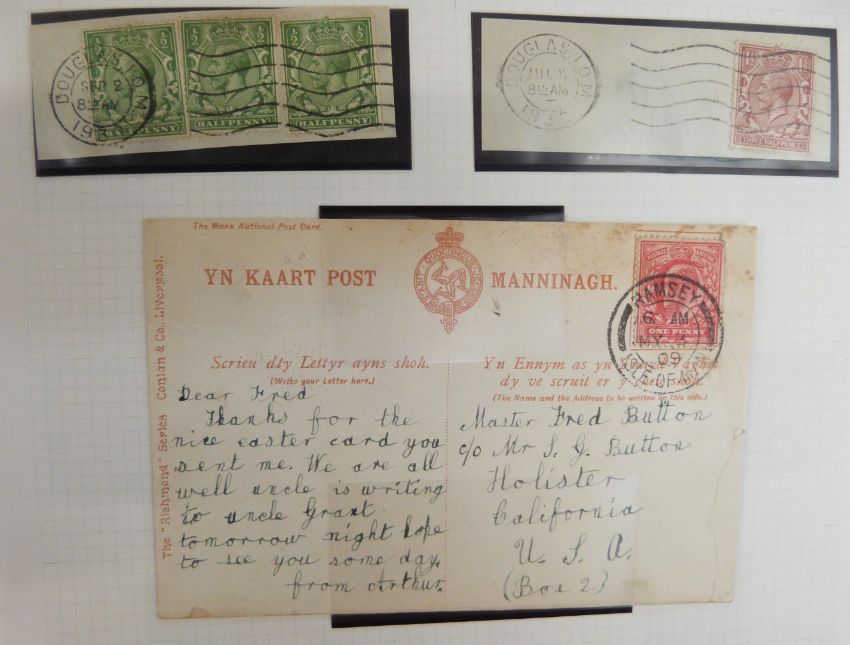 DOUGLAS I.O.M
8 15 AM
½ ½
½ ½
½ ½
HALFPENNY
HALFPENNY
HALFPENNY
DOUGLAS I.O.M
8 15 AM
1½ 1½
THREE HALFPENCE
The Manx National Post Card.
YN KAART POST MANNINAGH.
ONE PENNY
RAMSEY
6 AM
09
ISLE OF MAN
The "Richmond" Series Conlan & Co., Liverpool.
Scrieu dty Lettyr ayns shoh.
(Write your Letter here.)
Yn Ennym as yn
dy ve scruit er y
(The Name and the Address to be written on this side.)
Dear Fred
Thanks for the
nice easter card you
sent me. We are all
well uncle is writing
to uncle Grant
tomorrow night hope
to see you some day.
from Arthur.
Master Fred Button
c/o Mr S. G. Button
Holister
California
U. S. A.
(Box 2)